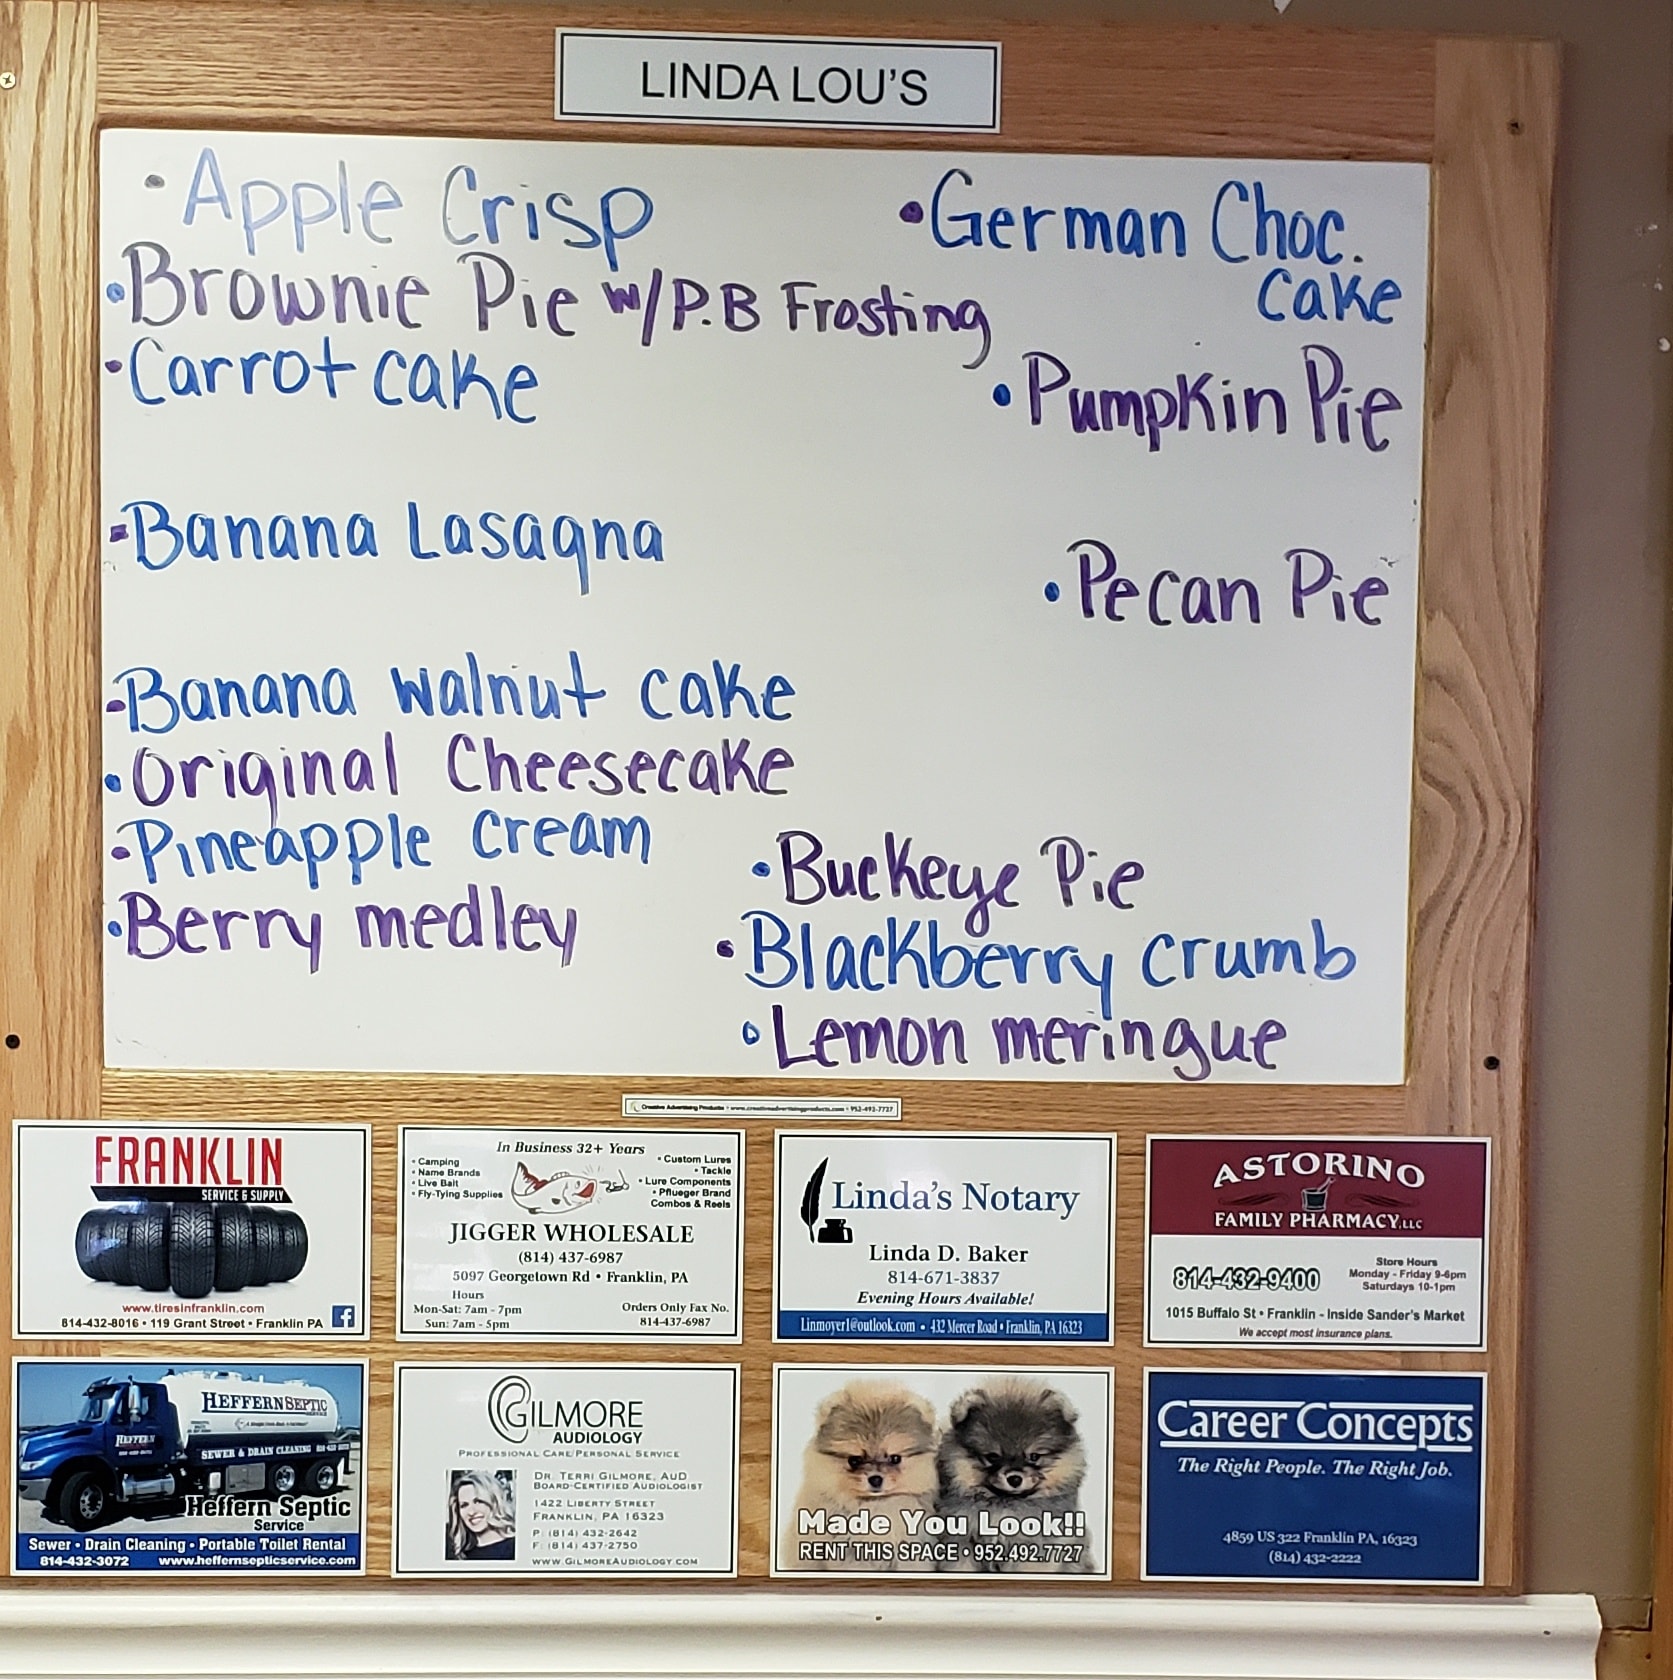 LINDA LOU'S
• Apple Crisp
• Brownie Pie w/P.B Frosting
• Carrot cake
• Banana Lasagna
• Banana walnut cake
• Original Cheesecake
• Pineapple cream
• Berry medley
• German Choc.
cake
• Pumpkin Pie
• Pecan Pie
• Buckeye Pie
• Blackberry crumb
• Lemon meringue
Creative Advertising Products • www.creativeadvertisingproducts.com • 952-492-7727
FRANKLIN
SERVICE & SUPPLY
www.tiresinfranklin.com
814-432-8016 • 119 Grant Street • Franklin PA
In Business 32+ Years
• Camping
• Name Brands
• Live Bait
• Fly-Tying Supplies
• Custom Lures
• Tackle
• Lure Components
• Pflueger Brand
Combos & Reels
JIGGER WHOLESALE
(814) 437-6987
5097 Georgetown Rd • Franklin, PA
Hours
Mon-Sat: 7am - 7pm
Sun: 7am - 5pm
Orders Only Fax No.
814-437-6987
Linda's Notary
Linda D. Baker
814-671-3837
Evening Hours Available!
Linmoyer1@outlook.com • 432 Mercer Road • Franklin, PA 16323
ASTORINO
FAMILY PHARMACY, LLC
814-432-9400
Store Hours
Monday - Friday 9-6pm
Saturdays 10-1pm
1015 Buffalo St • Franklin - Inside Sander's Market
We accept most insurance plans.
HEFFERN SEPTIC
HEFFERN
SEWER & DRAIN CLEANING
Heffern Septic
Service
Sewer • Drain Cleaning • Portable Toilet Rental
814-432-3072 www.heffernsepticservice.com
GILMORE
AUDIOLOGY
PROFESSIONAL CARE/PERSONAL SERVICE
DR. TERRI GILMORE, AUD
BOARD-CERTIFIED AUDIOLOGIST
1422 LIBERTY STREET
FRANKLIN, PA 16323
P: (814) 432-2642
F: (814) 437-2750
WWW.GILMOREAUDIOLOGY.COM
Made You Look!!
RENT THIS SPACE • 952.492.7727
Career Concepts
The Right People. The Right Job.
4859 US 322 Franklin PA, 16323
(814) 432-2222